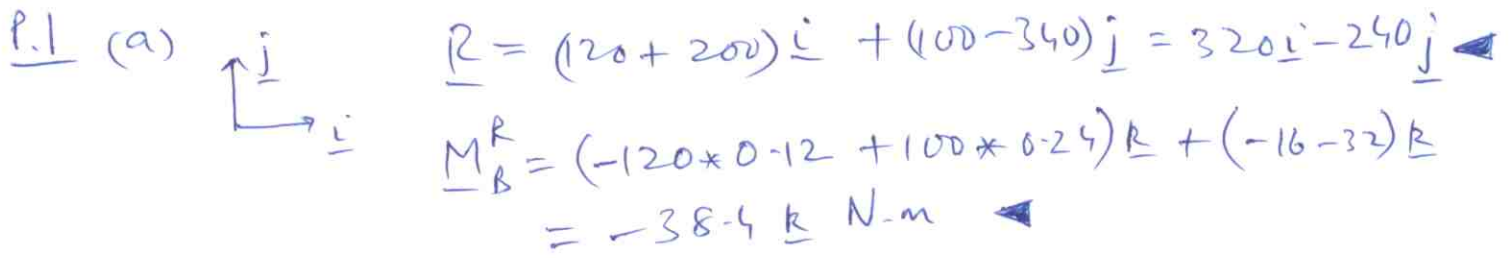 P.1 (a) j R = (120 + 200) i + (100 - 340) j = 320 i - 240 j ◀
i M_B^R = (-120 * 0.12 + 100 * 0.24) k + (-16 - 32) k
= -38.4 k N-m ◀